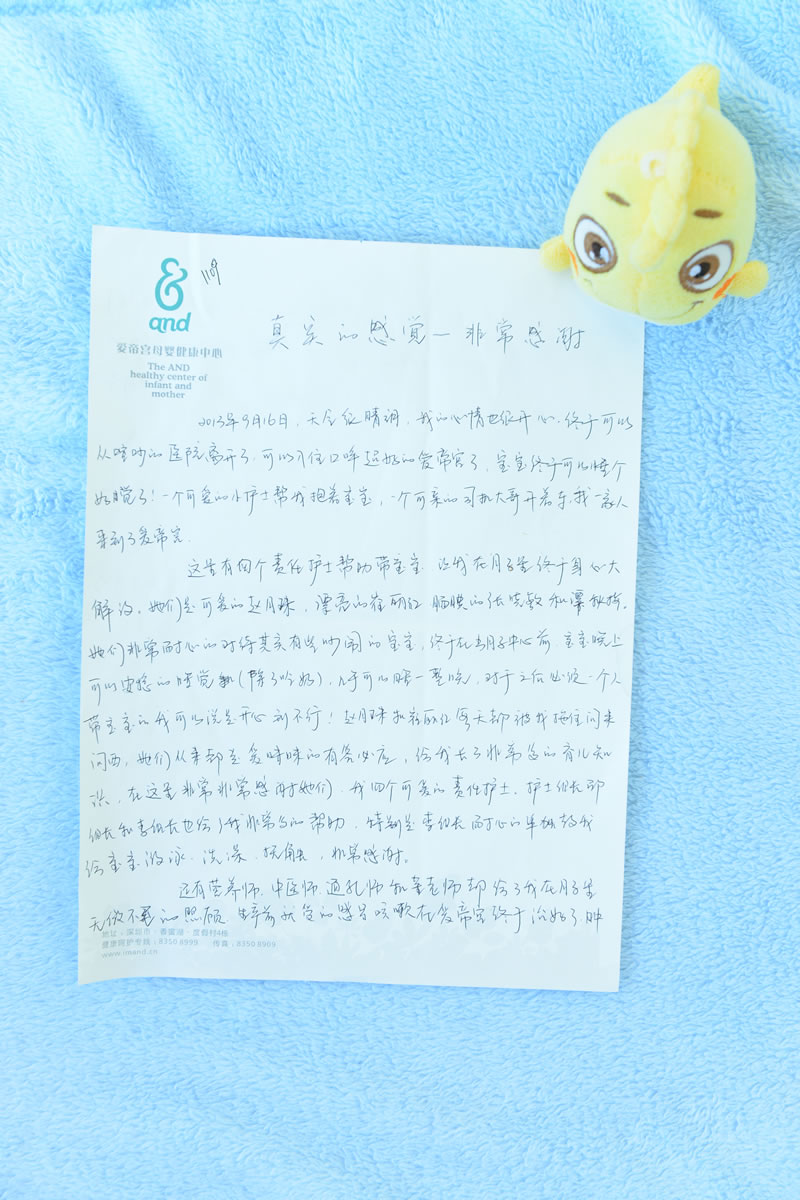 and
1109
爱帝宫母婴健康中心
The AND
healthy center of
infant and
mother
真实的感觉—非常感谢
2013年9月16日，天气很晴朗，我的心情也很开心，终于可以
从嘈吵的医院离开了，可以入住口碑超好的爱帝宫了，宝宝终于可以睡个
好觉了！一个可爱的小护士帮我抱着宝宝，一个可亲的司机大哥开着车，我一家人
来到了爱帝宫。
这里有四个责任护士帮助带宝宝，让我在月子里终于身心大
解放，她们是可爱的赵月珠，漂亮的崔丽红，腼腆的张
她们非常耐心的对待其实有些吵闹的宝宝，终于在出月子中心前，宝宝晚上
可以安稳的睡觉（除了吃奶），几乎可以睡一整晚，对于之后必须一个人
带宝宝的我可以说是开心到不行！赵月珠和崔丽红每天都被我拖住问东
问西，她们从来都是有答必应，给我长了非常多的育儿知
识，在这里非常非常感谢她们，我四个可爱的责任护士。护士组长邓
组长和李组长也给了我非常多的帮助，特别是李组长耐心的单独教我
给宝宝游泳、洗澡、抚触，非常感谢。
还有营养师、中医师、通乳师和 老师都给了我在月子里
无微不至的照顾，生产前就有的感冒咳嗽在爱帝宫终于治好了，肿
地址：深圳市·香蜜湖·度假村4栋
健康呵护专线：8350 8999 传真：8350 8909
www.imand.cn